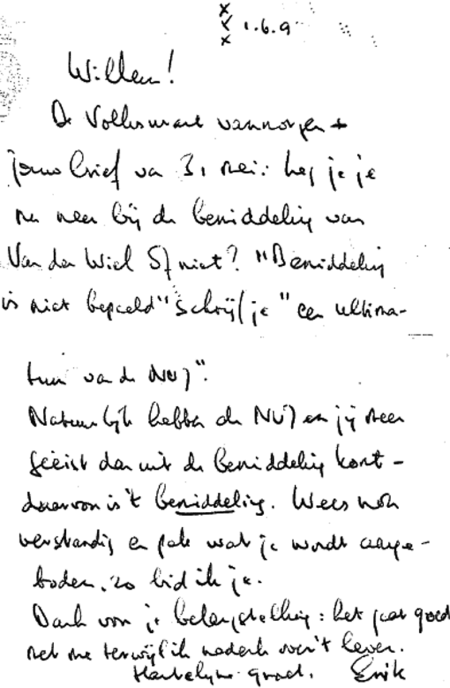 x x x 1.6.9
Willem!
De Volkskrant vanmorgen +
jouw brief van 31 mei: leg je je
nu neer bij de bemiddeling van
Van der Wiel of niet? "Bemiddeling
is niet bepaald" schrijf je "een ultima-
tum van de NVJ".
Natuurlijk hebben de NVJ en jij meer
geëist dan uit de bemiddeling komt -
daarvoor is 't bemiddeling. Wees nou
verstandig en pak wat je wordt aange-
boden, zo bid ik je.
Dank voor je belangstelling: het gaat goed
met me terwijl ik nadenk over 't leven.
Hartelijke groet, Erik